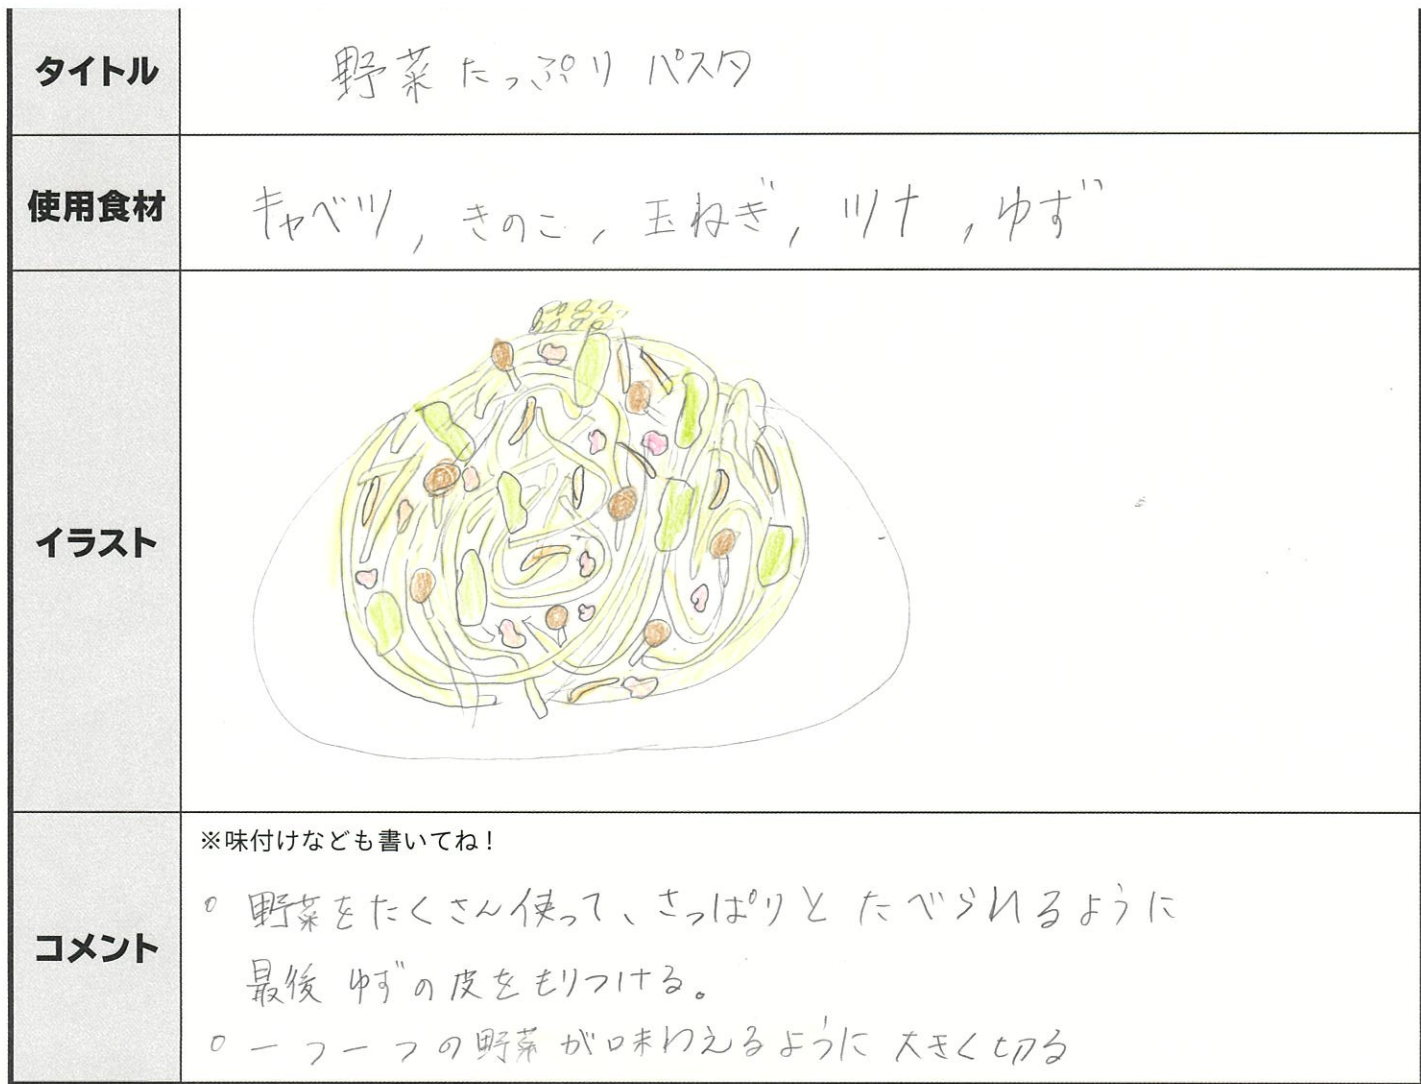 タイトル
野菜たっぷりパスタ
使用食材
キャベツ, きのこ, 玉ねぎ, ツナ, ゆず
イラスト
コメント
※味付けなども書いてね!
○ 野菜をたくさん使って、さっぱりと たべられるように
最後 ゆずの皮をもりつける。
○ 一つ一つの野菜が味わえるように 大きく切る